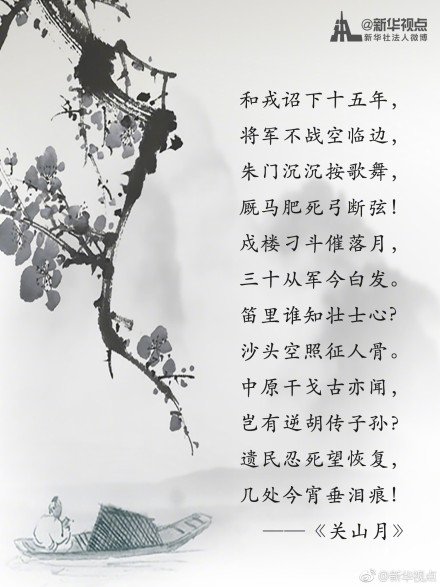 @新华视点
新华社法人微博
和戎诏下十五年，
将军不战空临边，
朱门沉沉按歌舞，
厩马肥死弓断弦！
戍楼刁斗催落月，
三十从军今白发。
笛里谁知壮士心？
沙头空照征人骨。
中原干戈古亦闻，
岂有逆胡传子孙？
遗民忍死望恢复，
几处今宵垂泪痕！
——《关山月》
@新华视点